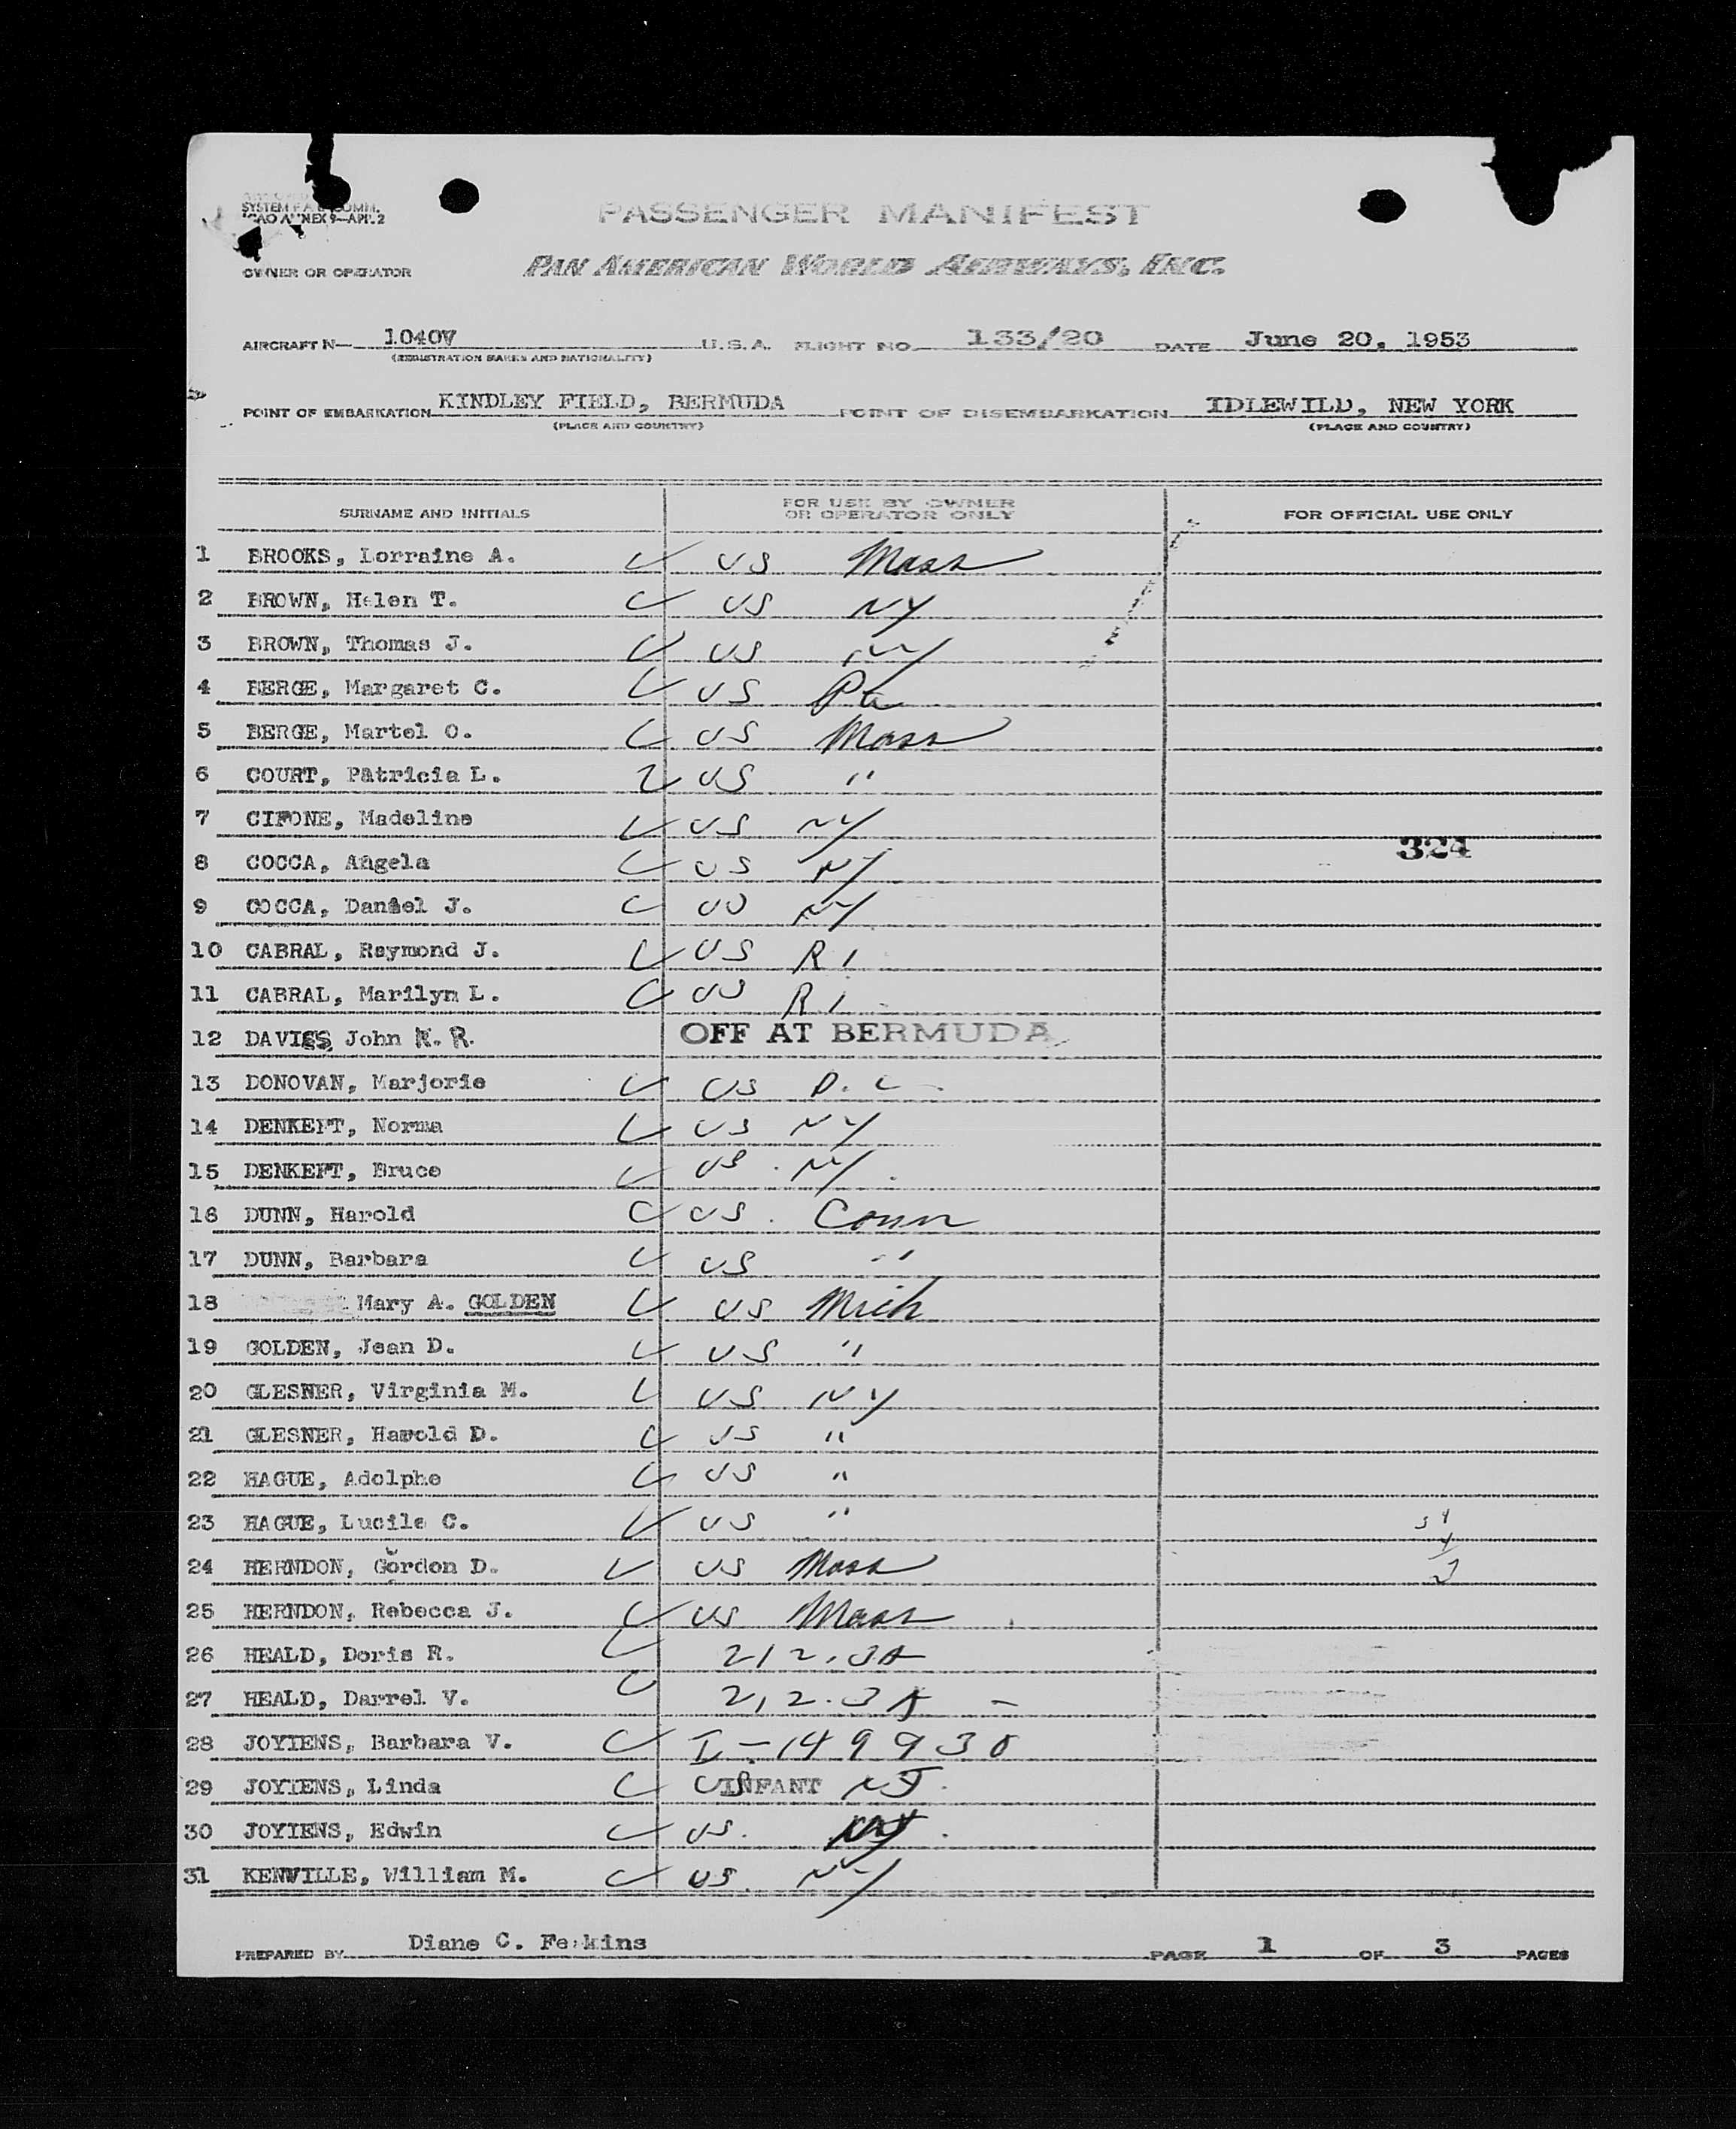 SYSTEM
ICAO ANNEX 9—APP. 2
PASSENGER MANIFEST
OWNER OR OPERATOR PAN AMERICAN WORLD AIRWAYS, INC.
AIRCRAFT N— 1040V U.S.A. FLIGHT NO. 133/20 DATE June 20, 1953
(REGISTRATION MARKS AND NATIONALITY)
POINT OF EMBARKATION KINDLEY FIELD, BERMUDA POINT OF DISEMBARKATION IDLEWILD, NEW YORK
(PLACE AND COUNTRY) (PLACE AND COUNTRY)
SURNAME AND INITIALS FOR USE BY OWNER OR OPERATOR ONLY FOR OFFICIAL USE ONLY
1 BROOKS, Lorraine A. US Mass
2 BROWN, Helen T. US NY
3 BROWN, Thomas J. US NY
4 BERGE, Margaret C. US Pa
5 BERGE, Martel O. US Mass
6 COURT, Patricia L. US "
7 CIFONE, Madeline US NY
324
8 COCCA, Angela US NY
9 COCCA, Daniel J. US NY
10 CABRAL, Raymond J. US RI
11 CABRAL, Marilym L. US RI
12 DAVIES John R. OFF AT BERMUDA
13 DONOVAN, Marjorie US D.C.
14 DENKEFT, Norma US NY
15 DENKEFT, Bruce US NY
16 DUNN, Harold US Conn
17 DUNN, Barbara US "
18 Mary A. GOLDEN US Mich
19 GOLDEN, Jean D. US "
20 GLESNER, Virginia M. US NY
21 GLESNER, Harold D. US "
22 HAGUE, Adolphe US "
23 HAGUE, Lucile C. US "
24 HERNDON, Gordon D. US Mass
25 HERNDON, Rebecca J. US Mass
26 HEALD, Doris R. 212.3A
27 HEALD, Darrel V. 212.3A
28 JOYIENS, Barbara V. I-1499930
29 JOYIENS, Linda US INFANT NJ
30 JOYIENS, Edwin US.
31 KENVILLE, William M. US. NY
PREPARED BY Diane C. Perkins PAGE 1 OF 3 PAGES